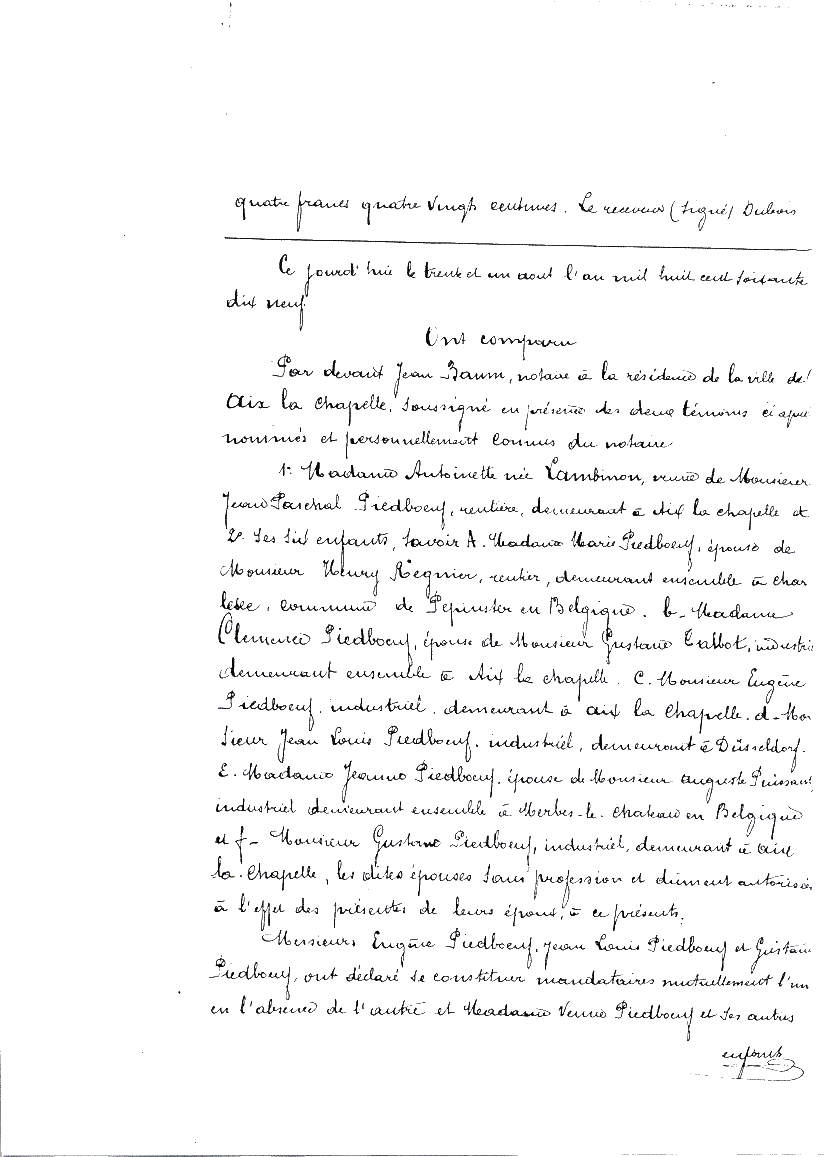 quatre francs quatre vingt centimes. Le receveur (signé) Dubois
Ce jourd'hui le trente et un aout l'an mil huit cent soixante
dix neuf
Ont comparu
Par devant Jean Baum, notaire à la résidence de la ville de
Aix la Chapelle, soussigné en présence des deux témoins ci après
nommés et personnellement connus du notaire
1° Madame Antoinette née Lambinon, veuve de Monsieur
Jean Paschal Piedboeuf, rentière, demeurant à Aix la chapelle et
2° Ses six enfants, savoir A. Madame Marie Piedboeuf, épouse de
Monsieur Henry Regnier, rentier, demeurant ensemble à
commune de Pepinster en Belgique. b- Madame
Clemence Piedboeuf, épouse de Monsieur Gustave Talbot, industrie
demeurant ensemble à Aix la chapelle. C. Monsieur Eugène
Piedboeuf, industriel, demeurant à aix la Chapelle. d- Mon
sieur Jean Louis Piedboeuf, industriel, demeurant à Düsseldorf.
E. Madame Jeanne Piedboeuf, épouse de Monsieur auguste Puissant
industriel demeurant ensemble à Merbes-le-chateau en Belgique
et f- Monsieur Gustave Piedboeuf, industriel, demeurant à aix
la-Chapelle, les dites épouses sans profession et dûment autorisées
à l'effet des présentes de leurs époux, à ce présents.
Messieurs Eugène Piedboeuf, Jean Louis Piedboeuf et Gustave
Piedboeuf, ont déclaré se constituer mandataires mutuellement l'un
en l'absence de l'autre et Madame Veuve Piedboeuf et ses autres
enfants